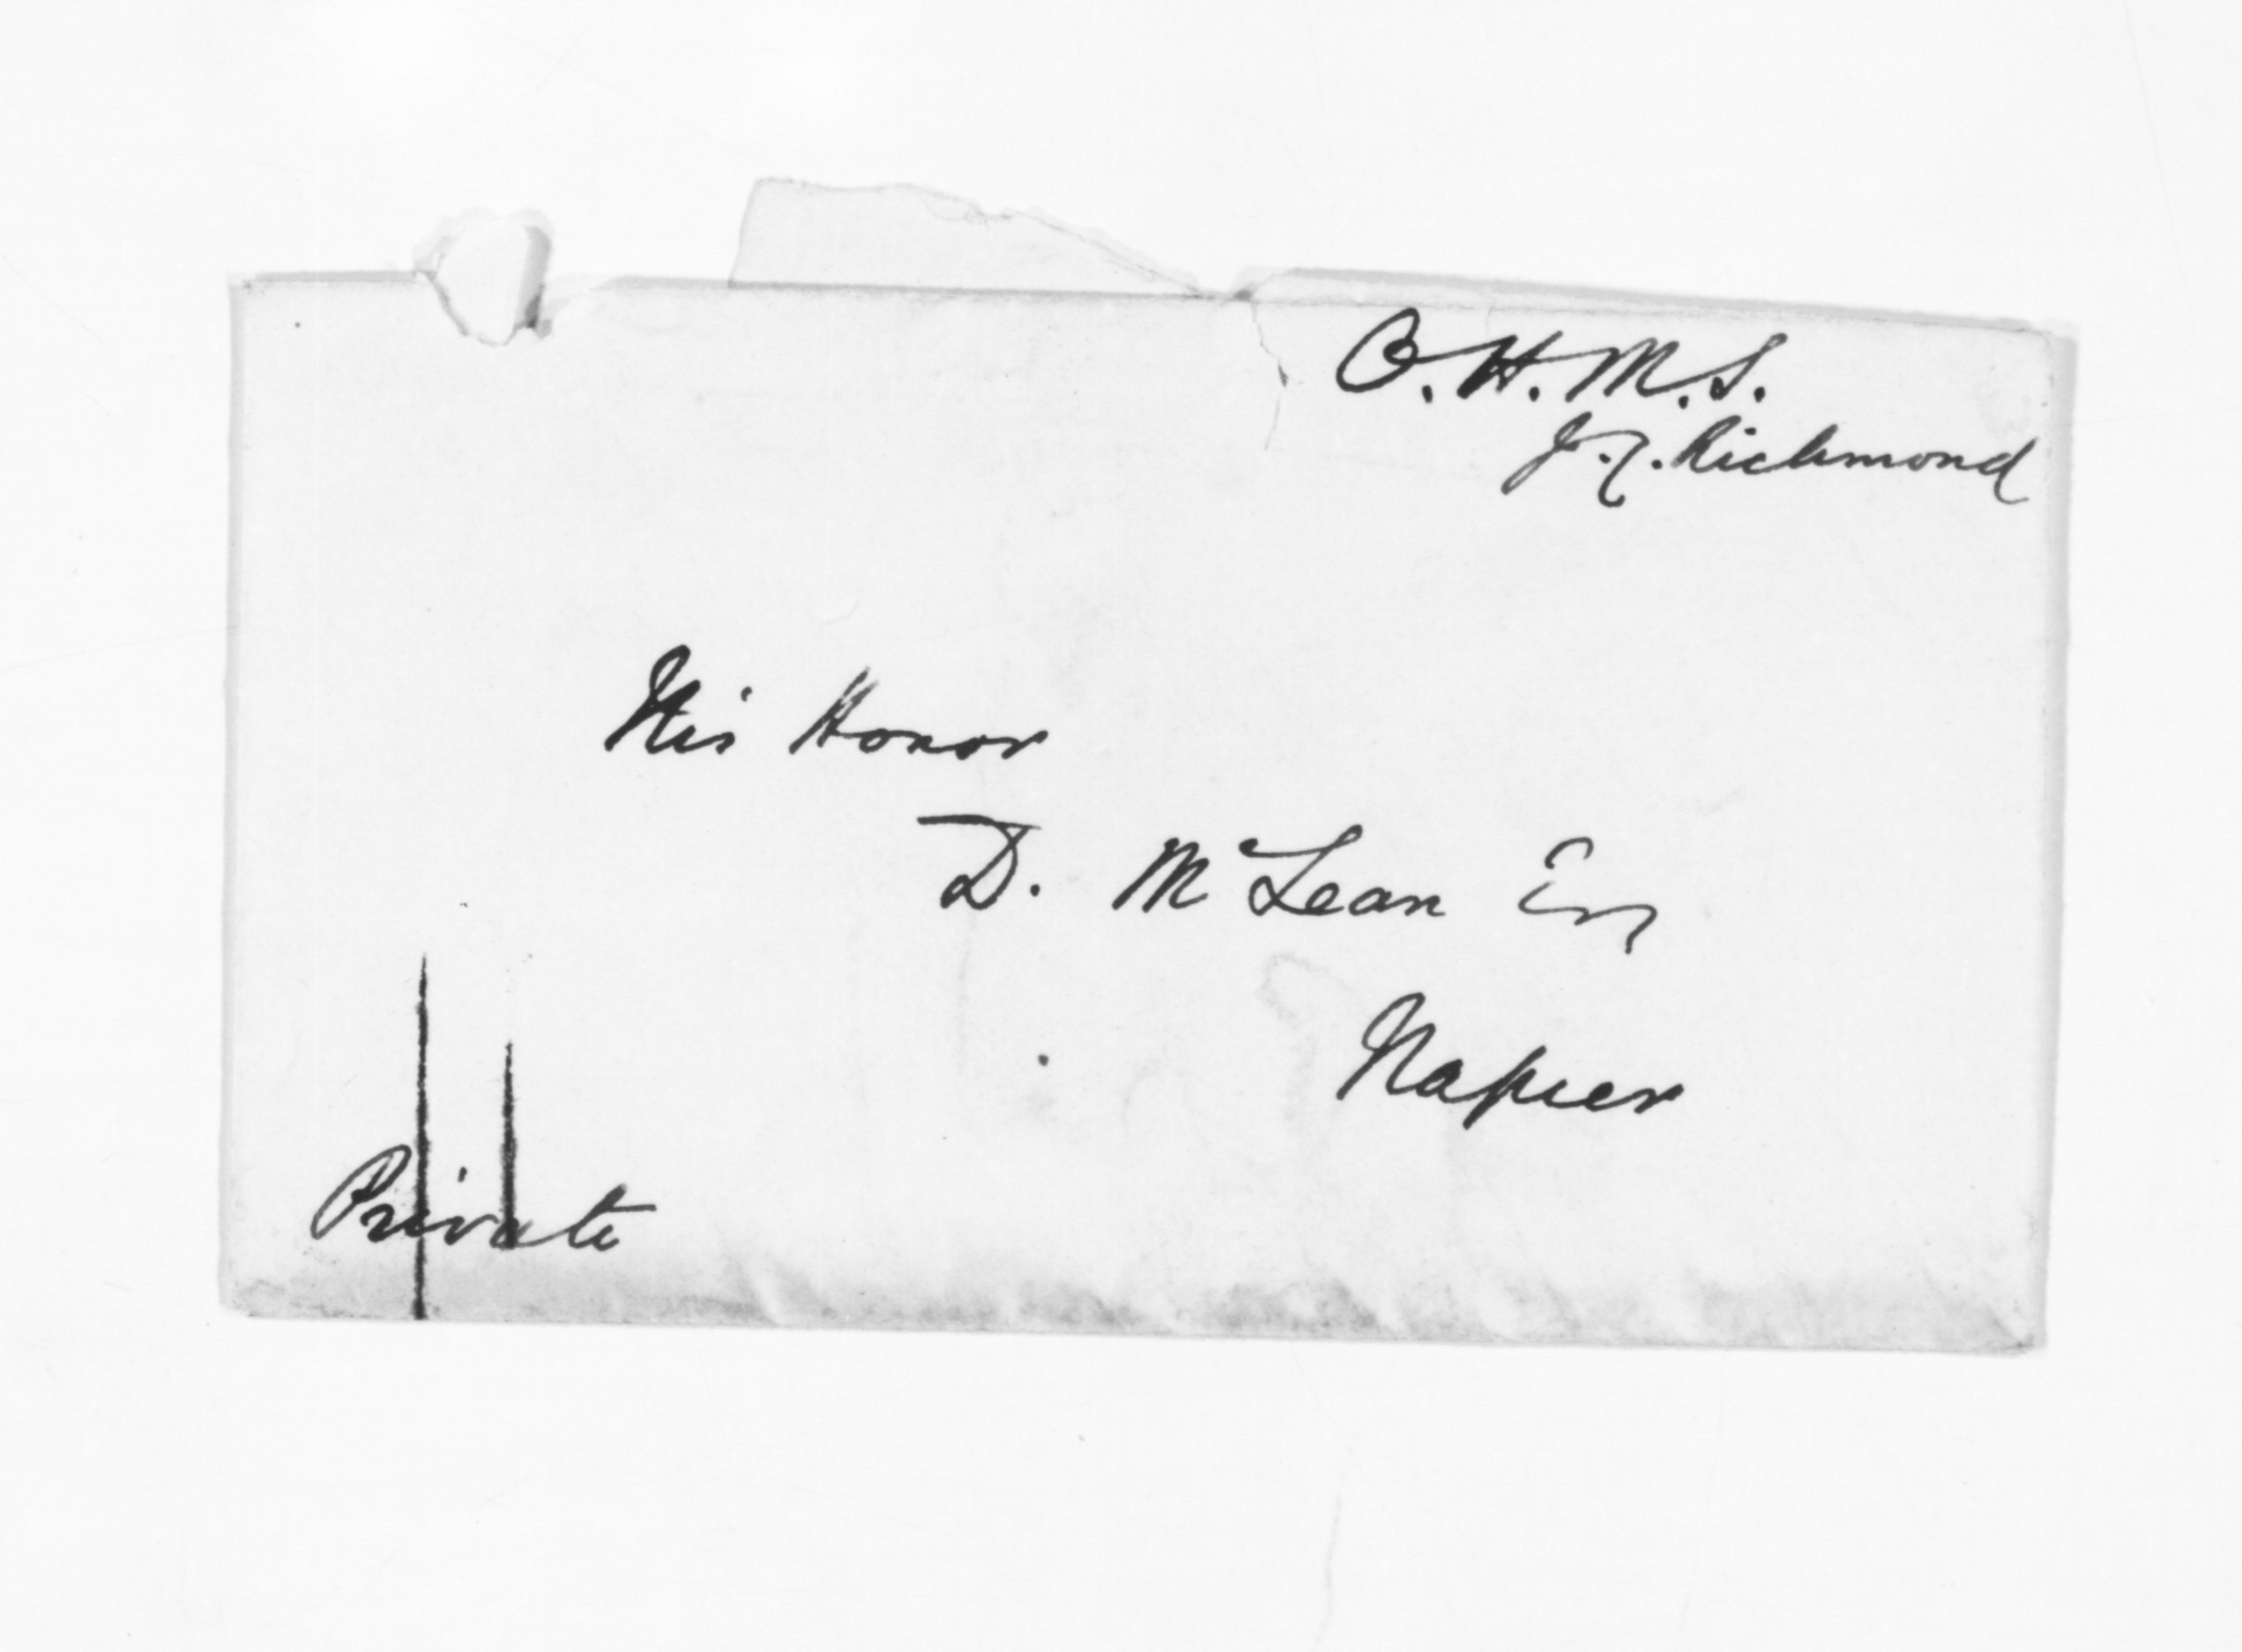 O.H.M.S.
J.C. Richmond
His Honor
D. McLean Esq
Napier
Private